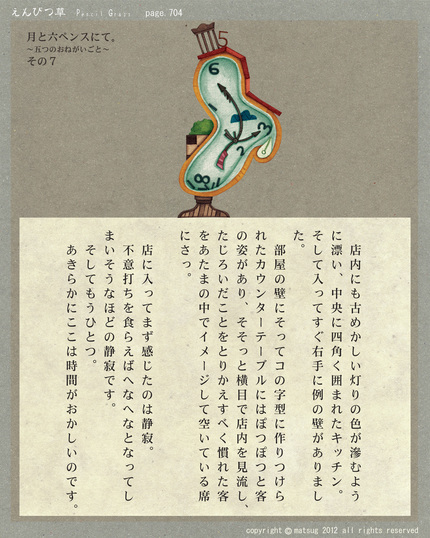 えんぴつ草 Pencil Grass page.704
月と六ペンスにて。
～五つのおねがいごと～
その７
5
6
3
8
店内にも古めかしい灯りの色が滲むよう
に漂い、中央に四角く囲まれたキッチン。
そして入ってすぐ右手に例の壁がありまし
た。
部屋の壁にそってコの字型に作りつけら
れたカウンターテーブルにはぽつぽつと客
の姿があり、そそっと横目で店内を見流し、
たじろいだことをとりかえすべく慣れた客
をあたまの中でイメージして空いている席
にさっ。
店に入ってまず感じたのは静寂。
不意打ちを食らえばへなへなとなってし
まいそうなほどの静寂です。
そしてもうひとつ。
あきらかにここは時間がおかしいのです。
copyright ©matsug 2012 all rights reserved